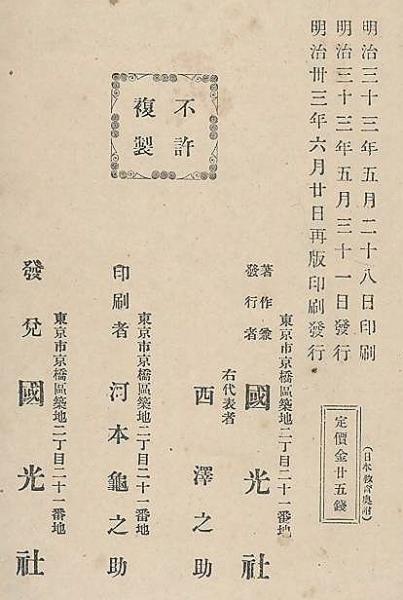 明治三十三年五月二十八日印刷
明治三十三年五月三十一日發行
明治卅三年六月廿日再版印刷發行
(日本敎育奧附)
定價金廿五錢
不許
複製
東京市京橋區築地二丁目二十一番地
著作兼
發行者
國光社
右代表者
西澤之助
東京市京橋區築地二丁目二十一番地
印刷者 河本龜之助
東京市京橋區築地二丁目二十一番地
發兌 國光社